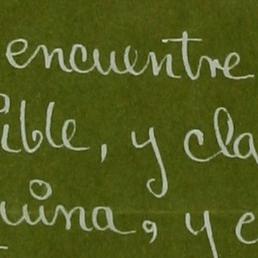 encuentre
ible, y cla
uina, y e